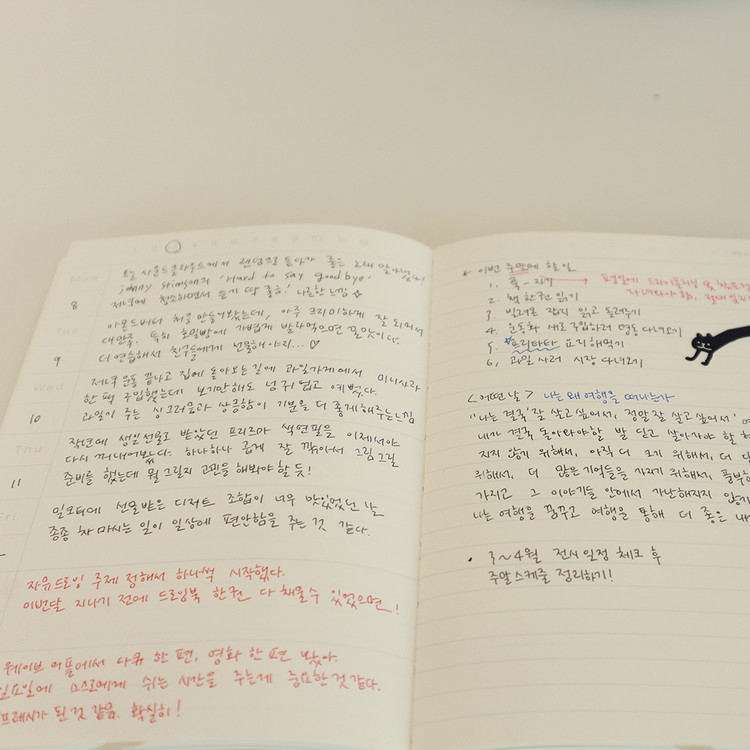 오늘 사운드클라우드에서 랜덤으로 듣다가 좋은 노래 알아냈다!
'Hard to say goodbye'
8 저녁에 청소하면서 듣기 딱 좋음! 나른한 느낌☆
아몬드버터 처음 만들어봤는데, 아주 크리미하게 잘 되어서
대만족. 특히 호밀빵에 가볍게 발라먹으면 꿀맛이다.
9 더 연습해서 친구들에게 선물해야지...♡
저녁 운동 끝나고 집에 돌아오는 길에 과일가게에서 미니사과
한 팩 구입했는데 보기만해도 넘 귀엽고 예뻤다.
10 과일이 주는 싱그러움과 상큼함이 기분을 더 좋게 해주는 느낌
작년에 생일선물로 받았던 프리즈마 색연필을 이제서야
다시 꺼내어봤다. 하나하나 곱게 잘 깎아서 그림 그릴
11 준비를 했는데 뭘 그릴지 고민을 해봐야 할 듯!
밀크티에 선물받은 디저트 조합이 너무 맛있었던 날
종종 차 마시는 일이 일상에 편안함을 주는 것 같다.
자유드로잉 주제 정해서 하나씩 시작했다.
이번달 지나기 전에 드로잉북 한권 다 채울수 있었으면!
웨이브 어플에서 다큐 한 편, 영화 한 편 봤다.
일요일에 스스로에게 쉬는 시간을 주는게 중요한것 같다.
프레시가 된 것 같음. 확실히!
이번 주말에 할 일
1.
2. 책 한권 읽기
3. 빌려온 잡지 읽고 돌려주기
4. 운동화 새로 구입하러 명동 다녀오기
5. *프리타타 요리해먹기
6. 과일 사러 시장 다녀오기
<어떤 날> 나는 왜 여행을 떠나는가
"나는 결국 잘 살고 싶어서, 정말 잘 살고 싶어서'
내가 결국 돌아와야할 발 닫고 살아가야 할
지지 않기 위해서, 아직 더 크기 위해서, 더
위해서, 더 많은 기억들을 가지기 위해서,
가지고 그 이야기들 안에서 가난해지지 않기
나는 여행을 꿈꾸고 여행을 통해 더 좋은
• 3~4월 전시일정 체크 후
주말스케줄 정리하기!